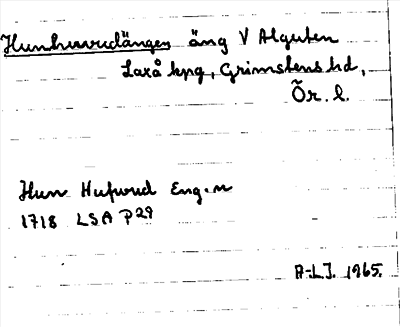 Hunhuvudängen äng V Alguten
Laxå kpg, Grimstens hd,
Ör. l.
Hun Hufwud Eng-n
1718 LSA P29
A-L J. 1965.